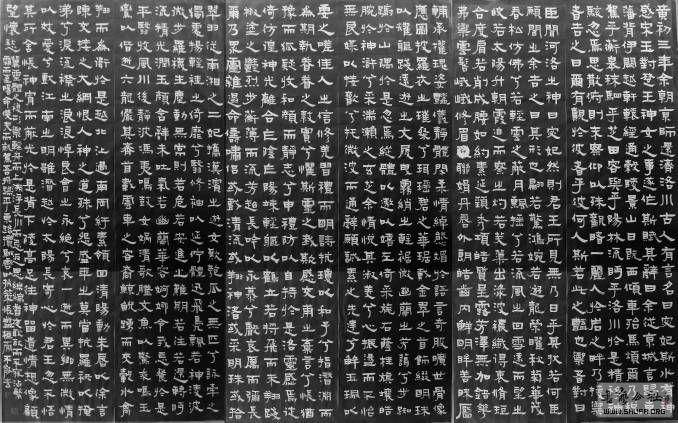 黃初三年余朝京師還濟洛川古人有言
感宋玉對楚王神女之事遂作斯賦其辭曰余從京域言
藩背伊闕越轘轅經通谷陵景山日既西傾車殆馬煩爾
駕乎蘅皋秣駟乎芝田容與乎陽林流眄乎洛川於是精移
駭忽焉思散俯則未察仰以殊觀睹一麗人於岩之畔乃
告之曰爾有覿於彼者乎彼何人斯若此之豔也對曰
臣聞河洛之神名曰宓妃然則君王所見無乃是乎其狀若何臣
願聞之余告之曰其形也翩若驚鴻婉若遊龍榮曜秋菊華茂
春松仿佛兮若輕雲之蔽月飄颻兮若流風之回雪遠而望之
皎若太陽升朝霞迫而察之灼若芙蕖出淥波襛纖得衷脩短合
度肩若削成腰如約素延頸秀項皓質呈露芳澤無加鉛華
弗御雲髻峨峨修眉聯娟丹唇外朗皓齒內鮮明眸善睞靨
輔承權瓌姿豔逸儀靜體閑柔情綽態媚於語言奇服曠世骨像
應圖披羅衣之璀粲兮珥瑤碧之華琚戴金翠之首飾綴明珠
以耀軀踐遠遊之文履曳霧綃之輕裾微幽蘭之芳藹兮步踟
躕於山隅於是忽焉縱體以遨以嬉左倚采旄右蔭桂旗攘皓
腕於神滸兮采湍瀨之玄芝余情悅其淑美兮心振蕩而不怡
無良媒以接歡兮托微波而通辭願誠素之先達兮解玉佩以
要之嗟佳人之信修羌習禮而明詩抗瓊珶以和予兮指潛淵而
為期執眷眷之款實兮懼斯靈之我欺感交甫之棄言兮悵猶
豫而狐疑收和顏而靜志兮申禮防以自持於是洛靈感焉徙
倚彷徨神光離合乍陰乍陽竦輕軀以鶴立若將飛而未翔踐
椒塗之郁烈步蘅薄而流芳超長吟以永慕兮聲哀厲而彌長
爾乃眾靈雜遝命儔嘯侶或戲清流或翔神渚或采明珠或拾
翠羽從南湘之二妃攜漢濱之游女歎匏瓜之無匹兮詠牽牛
之獨處揚輕袿之猗靡兮翳修袖以延佇體迅飛鳧飄忽若神凌波
微步羅襪生塵動無常則若危若安進止難期若往若還轉眄
流精光潤玉顏含辭未吐氣若幽蘭華容婀娜令我忘餐於是屏
翳收風川后靜波馮夷鳴鼓女媧清歌騰文魚以警乘鳴玉
鸞以偕逝六龍儼其齊首載雲車之容裔鯨鯢踴而夾轂水禽
翔而為衛於是越北沚過南岡紆素領回清陽動朱唇以徐言
陳交接之大綱恨人神之道殊兮怨盛年之莫當抗羅袂以掩
涕兮淚流襟之浪浪悼良會之永絕兮哀一逝而異鄉無微情
以效愛兮獻江南之明璫雖潛處於太陰長寄心於君王忽不悟
其所舍悵神宵而蔽光於是背下陵高足往神留遺情想像顧
WWW.SHUFA.ORG